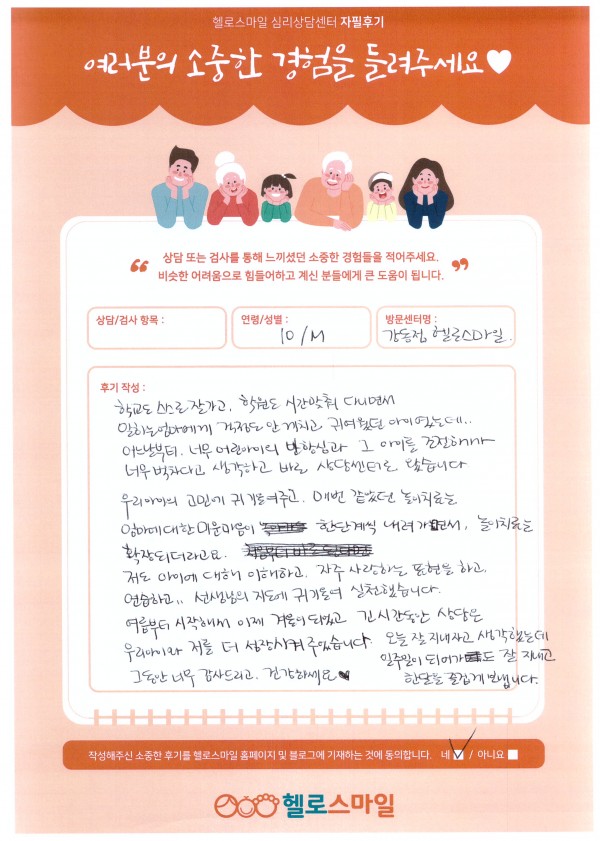 헬로스마일 심리상담센터 자필후기
여러분의 소중한 경험을 들려주세요♥
상담 또는 검사를 통해 느끼셨던 소중한 경험들을 적어주세요.
비슷한 어려움으로 힘들어하고 계신 분들에게 큰 도움이 됩니다.
상담/검사 항목 :
연령/성별 :
10/M
방문센터명 :
강동점 헬로스마일.
후기 작성 :
학교도 스스로 잘가고, 학원도 시간맞춰 다니면서
일하는엄마에게 걱정도 안 끼치고 귀여웠던 아이였는데..
어느날부터. 너무 어린아이의 반항심과 그 아이를 조전하기가
너무 벅차다고 생각하고 바로 상담센터로 왔습니다
우리아이의 고민에 귀 기울여주고. 매번 같았던 놀이치료는
엄마에 대한 미운마음이 한단계씩 내려가면서, 놀이치료는
확장되더라고요.
저도 아이에 대해 이해하고, 자주 사랑하는 표현을 하고.
연습하고.. 선생님의 지도에 귀기울여 실천했습니다.
여름부터 시작해서 이제 겨울이 되었고 긴시간동안 상담은
우리아이와 저를 더 성장시켜 주었습니다. 오늘 잘 지내자고 생각했는데
일주일이 되어가도 잘 지내고
그동안 너무 감사드리고. 건강하세요♥ 한달을 즐겁게 보냅니다.
작성해주신 소중한 후기를 헬로스마일 홈페이지 및 블로그에 기재하는 것에 동의합니다. 네 / 아니요
헬로스마일